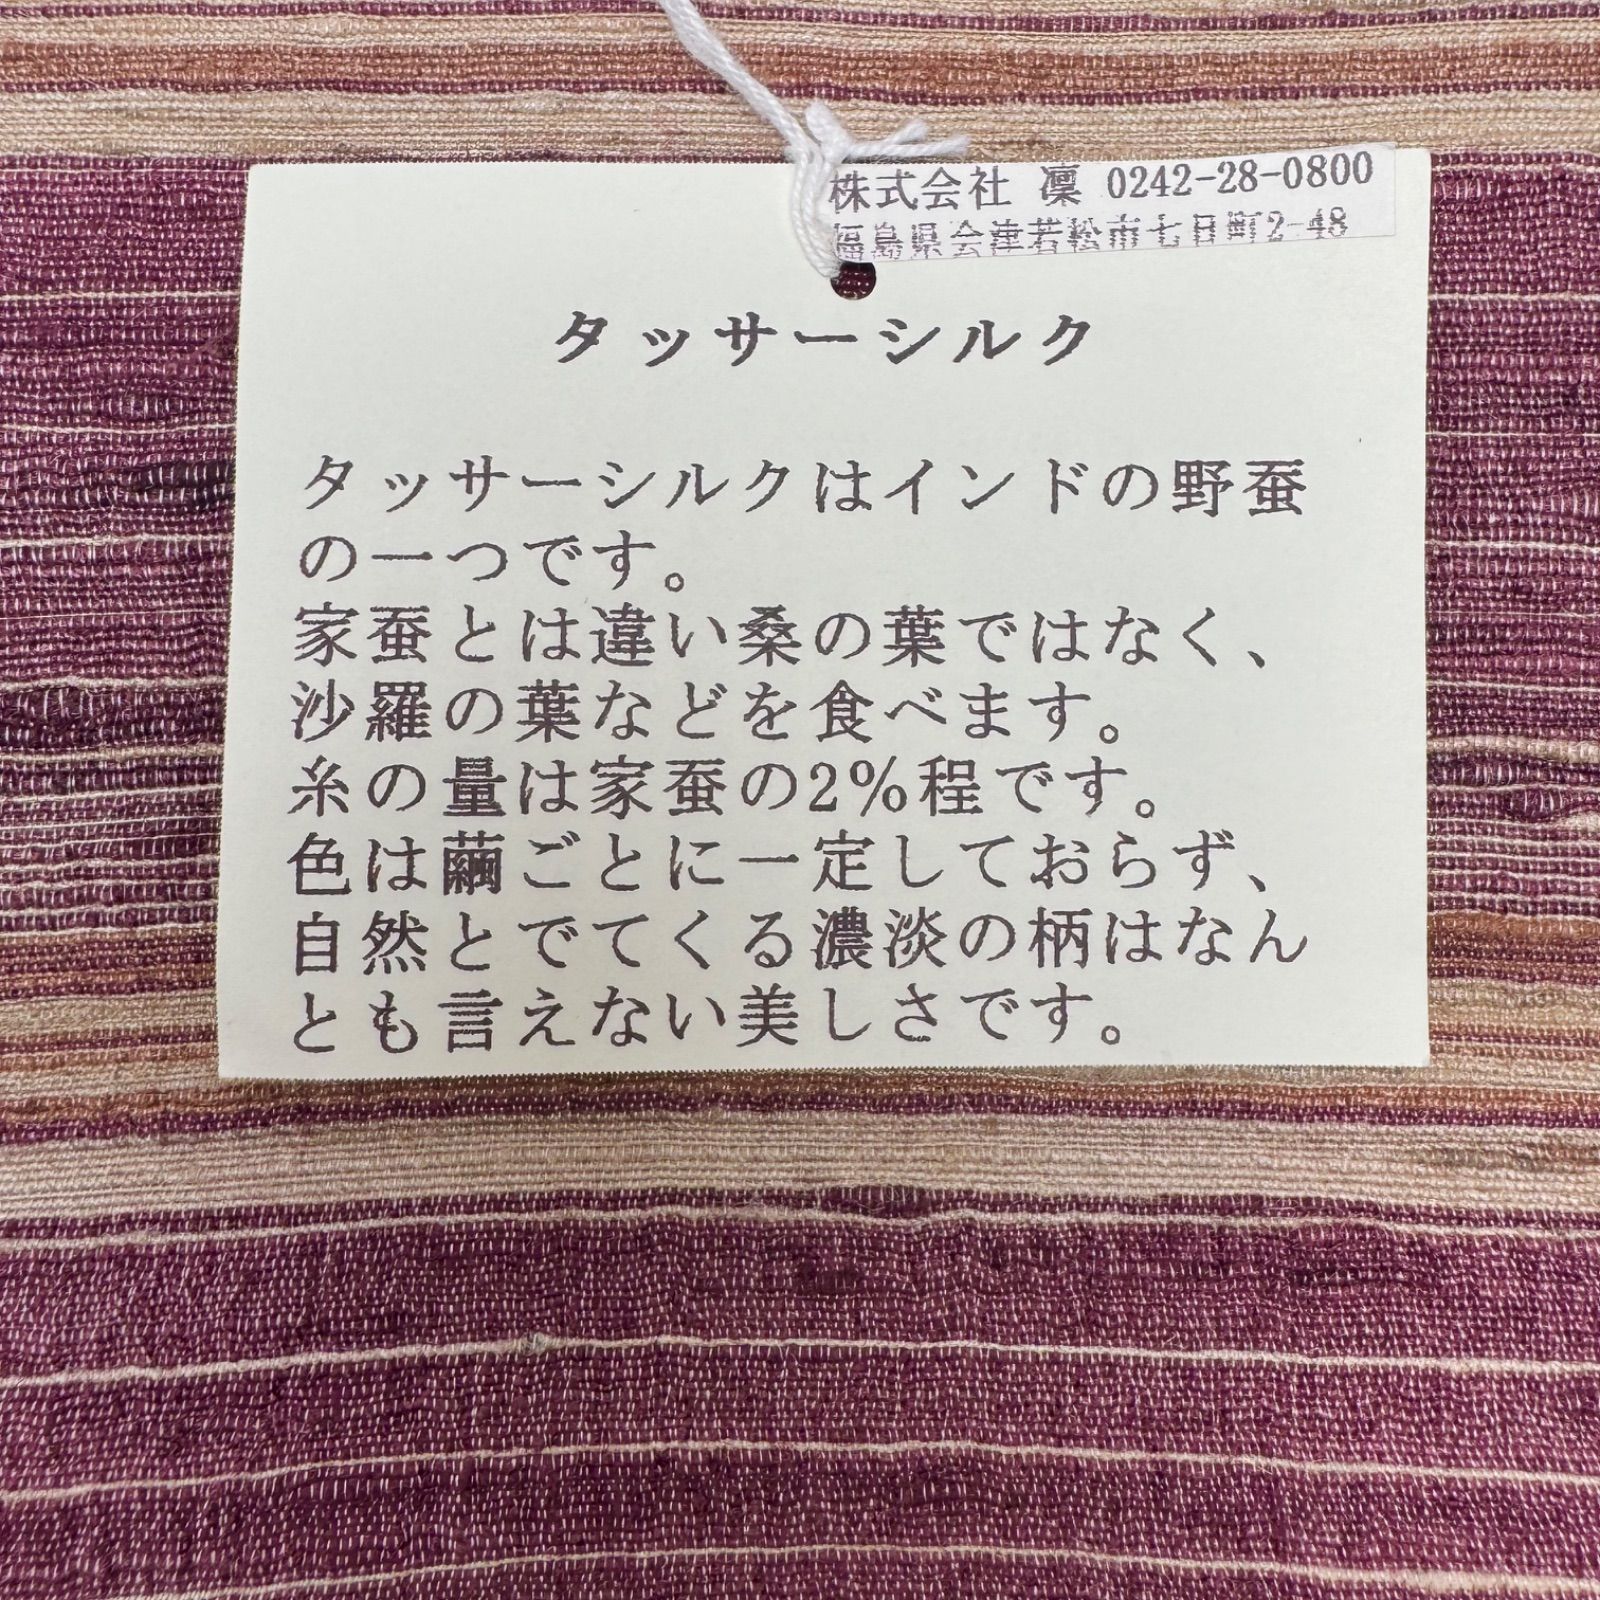 株式会社 凜 0242-28-0800
福島県会津若松市七日町2-48
タッサーシルク
タッサーシルクはインドの野蚕
の一つです。
家蚕とは違い桑の葉ではなく、
沙羅の葉などを食べます。
糸の量は家蚕の2%程です。
色は繭ごとに一定しておらず、
自然とでてくる濃淡の柄はなん
とも言えない美しさです。